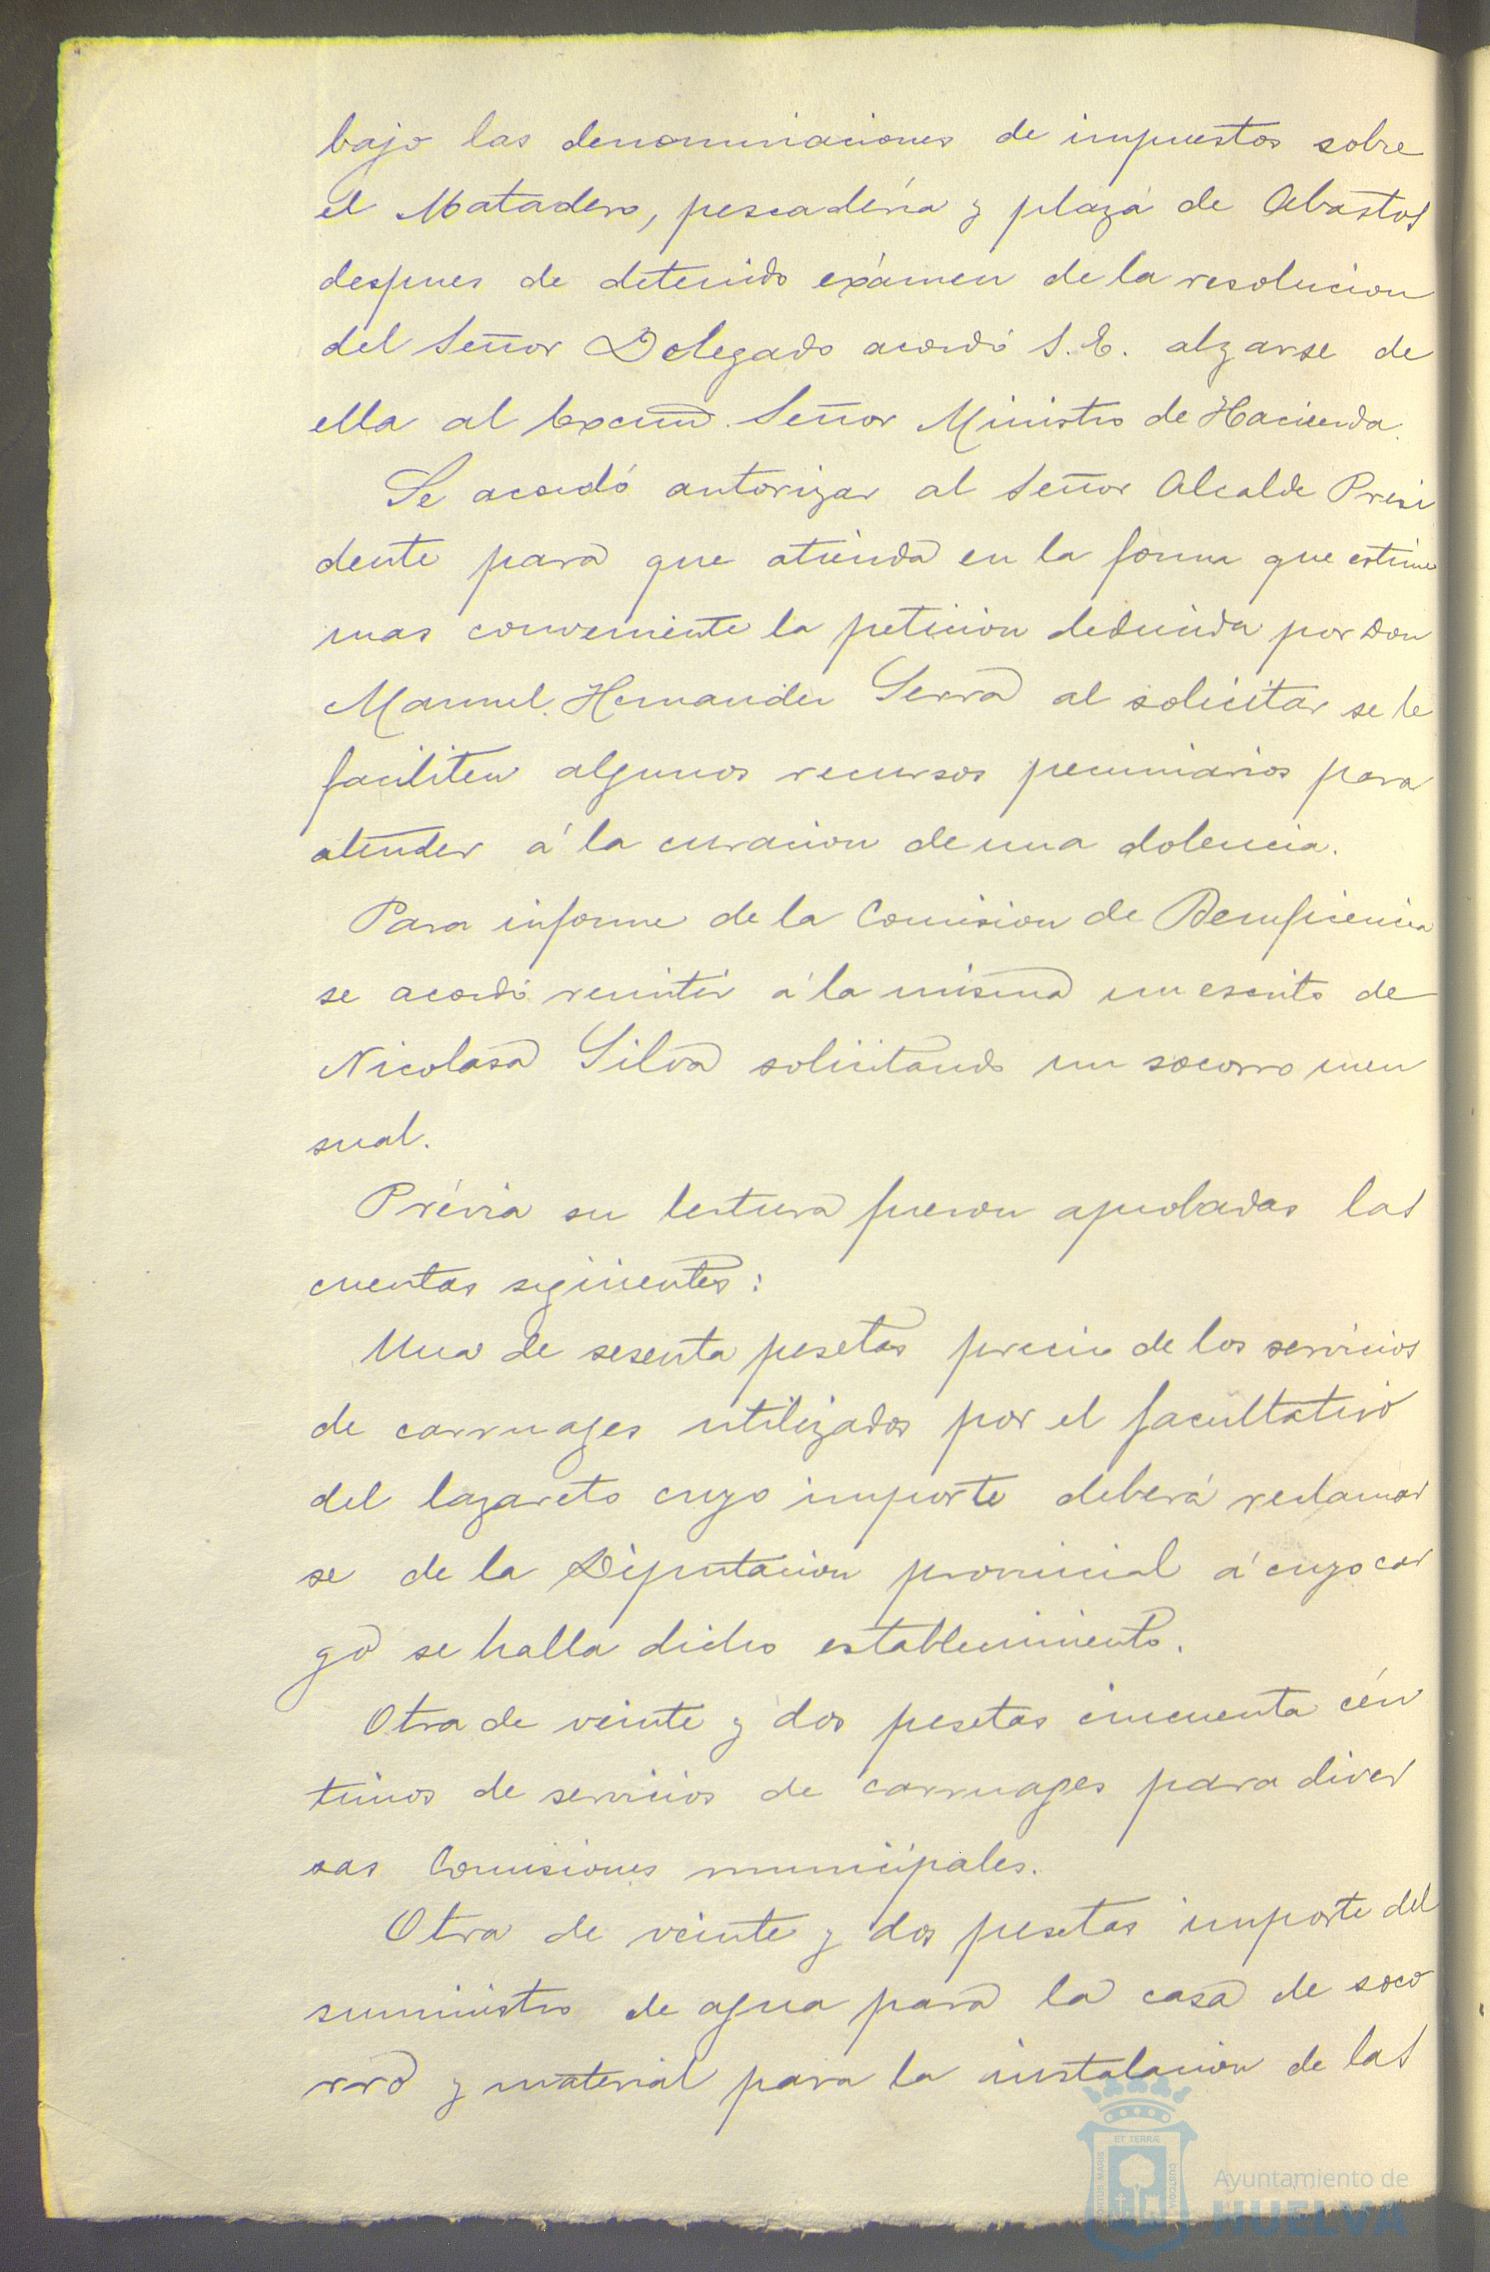 bajo las denominaciones de impuestos sobre
el Matadero, pescadería y plaza de Abastos
despues de detenido exámen de la resolucion
del Señor Delegado acordó S. E. alzarse de
ella al Excmo. Señor Ministro de Hacienda.
Se acordó autorizar al Señor Alcalde Presi
dente para que atienda en la forma que estime
mas conveniente la peticion deducida por Don
Manuel Hernandez Serra al solicitar se le
faciliten algunos recursos pecuniarios para
atender á la curacion de una dolencia.
Para informe de la Comision de Beneficencia
se acordó remitir á la misma un escrito de
Nicolasa Silva solicitando un socorro men
sual.
Prévia su lectura fueron aprobadas las
cuentas siguientes:
Una de sesenta pesetas precio de los servicios
de carruages utilizados por el facultativo
del lazareto cuyo importe deberá reclamar
se de la Diputacion provincial á cuyo car
go se halla dicho establecimiento.
Otra de veinte y dos pesetas cincuenta cén
timos de servicios de carruages para diver
sas Comisiones municipales.
Otra de veinte y dos pesetas importe del
suministro de agua para la casa de soco
rro y material para la instalacion de las
ET TERRÆ
PORTUS MARIS
CUSTODIA
Ayuntamiento de
HUELVA